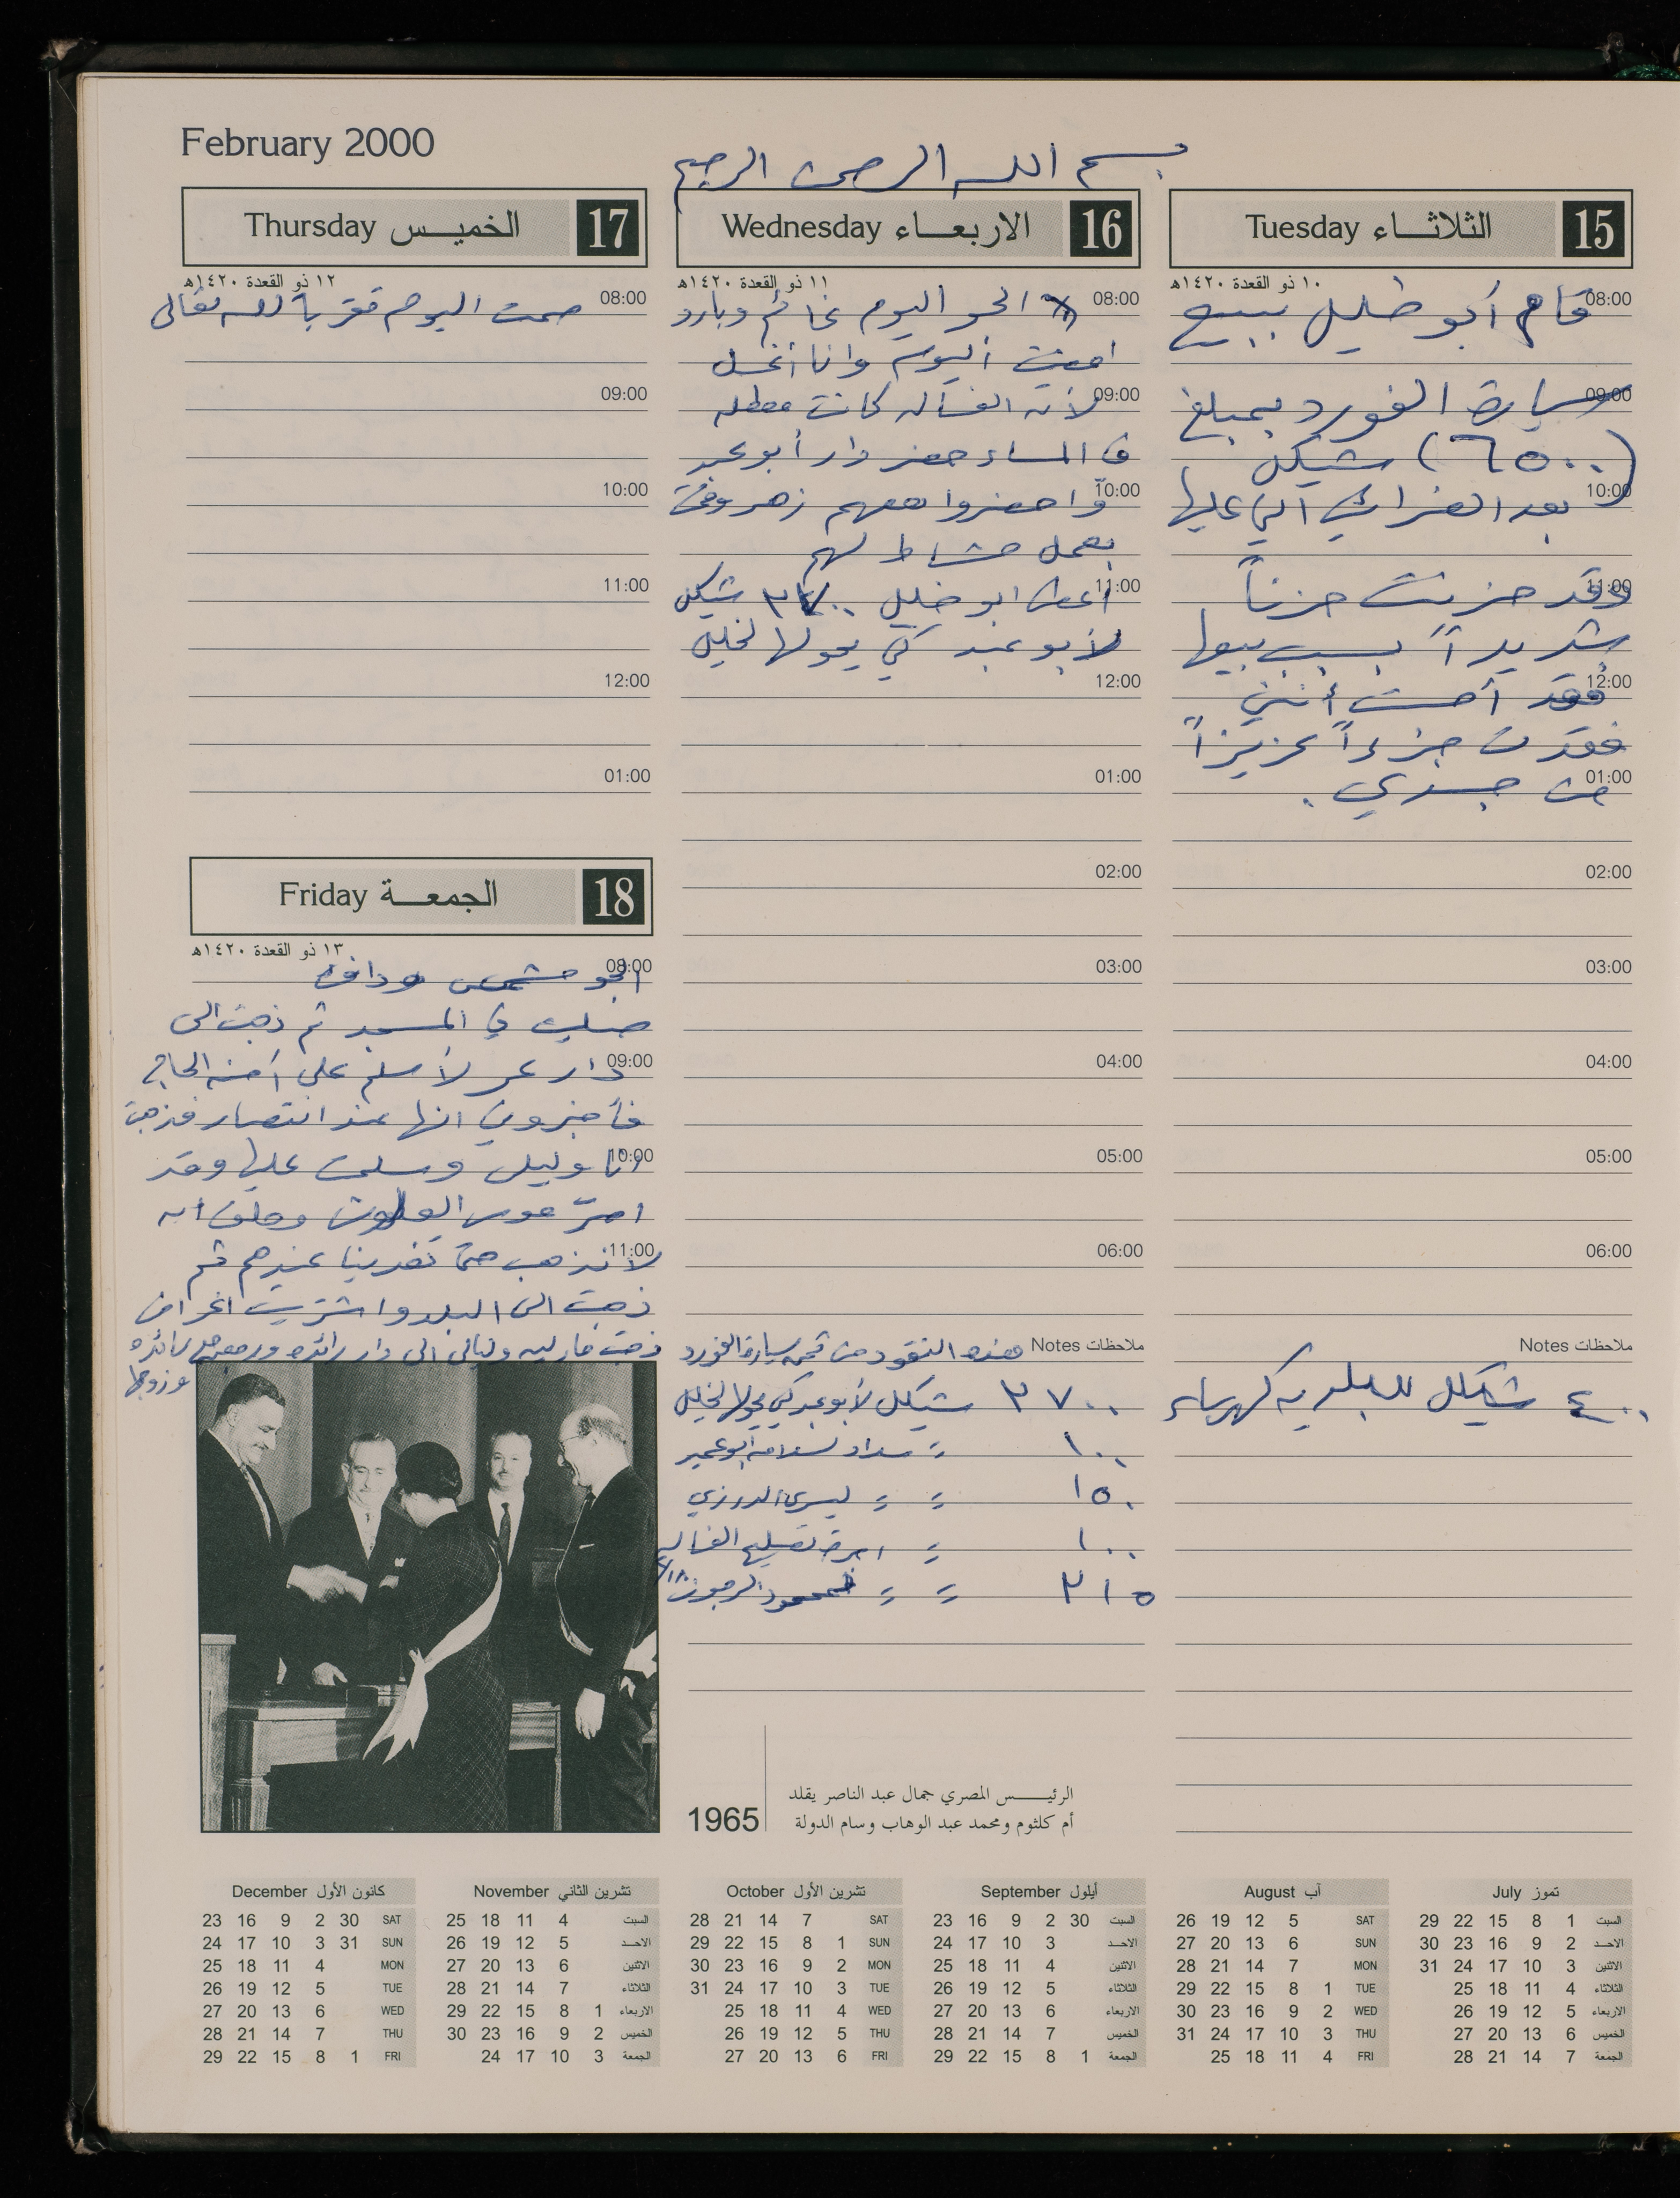 February 2000
بسم الله الرحمن الرحيم
15 الثلاثاء Tuesday
١٠ ذو القعدة ١٤٢٠هـ
08:00
قام أبو خليل ببيع
09:00
سيارة الفورد بمبلغ
(٦٥٠٠) شيكل
10:00
بعد الضرائب التي عليها
11:00
وقد حزنت حزناً
شديداً بسبب بيعها
12:00
فقد أحسست أنني
فقدت جزءاً عزيزاً
01:00
من جسدي.
02:00
03:00
04:00
05:00
06:00
ملاحظات Notes
٤٠٠ شيكل للبلديه كهرباء
16 الاربعاء Wednesday
١١ ذو القعدة ١٤٢٠هـ
08:00
الجو اليوم غائم وبارد
اليوم وانا أغسل
09:00
لأنه الغساله كانت معطله
في المساء حضر دار أبو عبد
10:00
واحضروا معهم
بعمل لهم
11:00
أعطى ابو خليل ٢٧٠٠ شيكل
لأبو عبد كي يحولها لخليل
12:00
01:00
02:00
03:00
04:00
05:00
06:00
ملاحظات Notes
هذه النقود من ثمن سيارة الفورد
٢٧٠٠ شيكل لأبو عبد كي يحولها لخليل
١٠٠ = سداد لسلامه ابو عمير
١٥٠ = = ليسرى الدرزي
١٠٠ = اجرة تصليح الغساله
٢١٥ = = محمود
17 الخميس Thursday
١٢ ذو القعدة ١٤٢٠هـ
08:00
صمت اليوم تقربا لله تعالى
09:00
10:00
11:00
12:00
01:00
18 الجمعة Friday
١٣ ذو القعدة ١٤٢٠هـ
08:00
الجو مشمس ودافئ
صليت في المسجد ثم ذهبت الى
09:00
دار عمر لأسلم على آمنه الحاج
فأخبروني انها عند انتصار فذهبت
10:00
انا وسلمت عليها وقد
وحلف انه
11:00
لا نذهب حتى تغدينا عندهم ثم
ذهبت الى البلد واشتريت اغراض
ذهبت الى دار رائده
وزوجها
الرئيس المصري جمال عبد الناصر يقلد
أم كلثوم ومحمد عبد الوهاب وسام الدولة
1965
تموز July
السبت 1 8 15 22 29
الاحد 2 9 16 23 30
الاثنين 3 10 17 24 31
الثلاثاء 4 11 18 25
الاربعاء 5 12 19 26
الخميس 6 13 20 27
الجمعة 7 14 21 28
آب August
SAT 5 12 19 26
SUN 6 13 20 27
MON 7 14 21 28
TUE 1 8 15 22 29
WED 2 9 16 23 30
THU 3 10 17 24 31
FRI 4 11 18 25
أيلول September
السبت 30 2 9 16 23
الاحد 3 10 17 24
الاثنين 4 11 18 25
الثلاثاء 5 12 19 26
الاربعاء 6 13 20 27
الخميس 7 14 21 28
الجمعة 1 8 15 22 29
تشرين الأول October
SAT 7 14 21 28
SUN 1 8 15 22 29
MON 2 9 16 23 30
TUE 3 10 17 24 31
WED 4 11 18 25
THU 5 12 19 26
FRI 6 13 20 27
تشرين الثاني November
السبت 4 11 18 25
الاحد 5 12 19 26
الاثنين 6 13 20 27
الثلاثاء 7 14 21 28
الاربعاء 1 8 15 22 29
الخميس 2 9 16 23 30
الجمعة 3 10 17 24
كانون الأول December
SAT 30 2 9 16 23
SUN 31 3 10 17 24
MON 4 11 18 25
TUE 5 12 19 26
WED 6 13 20 27
THU 7 14 21 28
FRI 1 8 15 22 29